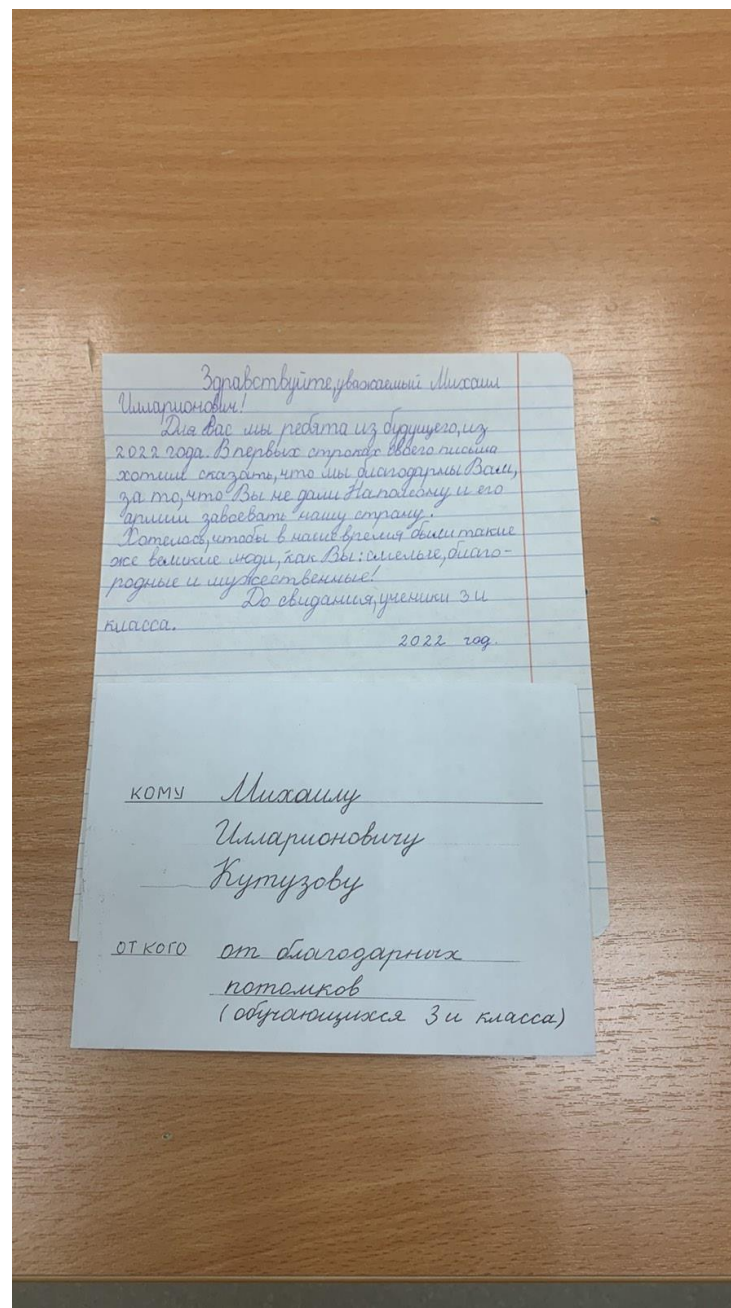 Здравствуйте, уважаемый Михаил
Илларионович!
Для Вас мы ребята из будущего, из
2022 года. В первых строках своего письма
хотим сказать, что мы благодарны Вам,
за то, что Вы не дали Наполеону и его
армии завоевать нашу страну.
Хотелось, чтобы в наше время были такие
же великие люди, как Вы: смелые, благо-
родные и мужественные!
До свидания, ученики 3 и
класса.
2022 год.
КОМУ Михаилу
Илларионовичу
Кутузову
ОТ КОГО от благодарных
потомков
(обучающихся 3 и класса)